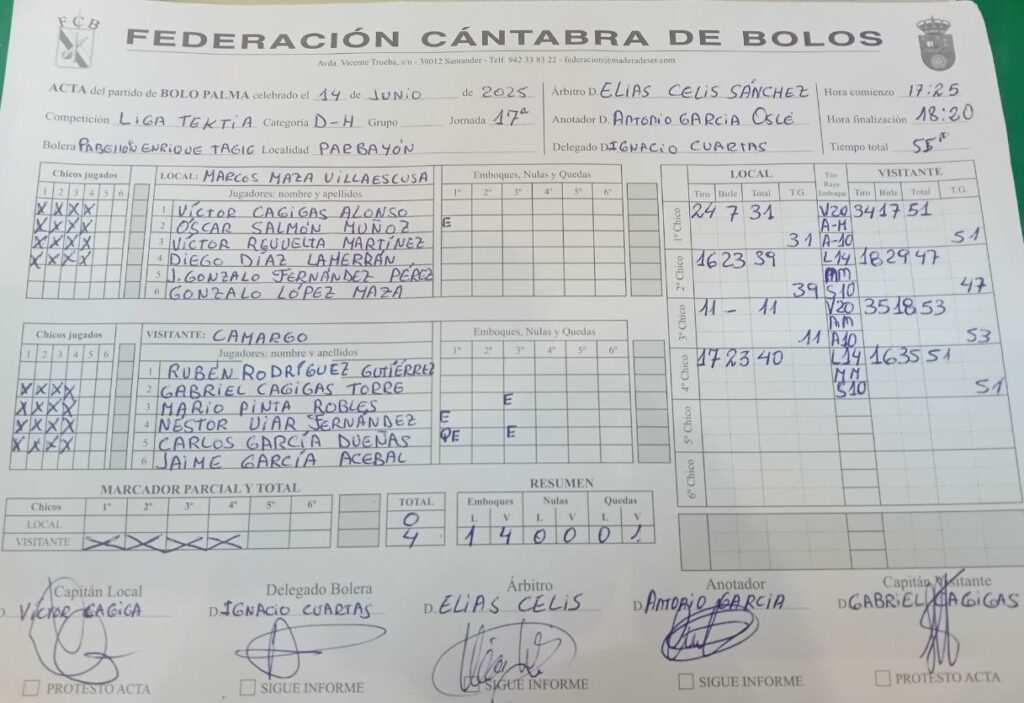 FCB
FEDERACIÓN CÁNTABRA DE BOLOS
Avda. Vicente Trueba, s/n - 39012 Santander - Telf: 942 33 83 22 - federacion@maderadeser.com
ACTA del partido de BOLO PALMA celebrado el 14 de JUNIO de 2025 Árbitro D. ELIAS CELIS SÁNCHEZ Hora comienzo 17:25
Competición LIGA TEKTIA Categoría D-H Grupo Jornada 17ª Anotador D. ANTONIO GARCIA OSLÉ Hora finalización 18:20
Bolera PABELLÓN ENRIQUE Localidad PARBAYÓN Delegado D. IGNACIO CUARTAS Tiempo total 55
Chicos jugados LOCAL: MARCOS MAZA VILLAESCUSA Emboques, Nulas y Quedas
1 2 3 4 5 6 Jugadores: nombre y apellidos 1º 2º 3º 4º 5º 6º
X X X X 1 VÍCTOR CAGIGAS ALONSO
X X X X 2 ÓSCAR SALMÓN MUÑOZ E
X X X X 3 VÍCTOR REVUELTA MARTÍNEZ
X X X X 4 DIEGO DÍAZ LAHERRÁN
5 J. GONZALO FERNÁNDEZ PÉREZ
6 GONZALO LÓPEZ MAZA
Chicos jugados VISITANTE: CAMARGO Emboques, Nulas y Quedas
1 2 3 4 5 6 Jugadores: nombre y apellidos 1º 2º 3º 4º 5º 6º
1 RUBÉN RODRÍGUEZ GUTIÉRREZ
X X X X 2 GABRIEL CAGIGAS TORRE
X X X X 3 MARIO PINTA ROBLES E
X X X X 4 NÉSTOR VIAR FERNÁNDEZ E
X X X X 5 CARLOS GARCÍA DUEÑAS QE E
6 JAIME GARCÍA ACEBAL
LOCAL Tiro Raya Emboque VISITANTE
Tiro Birle Total T.G. Tiro Birle Total T.G.
1º Chico 24 7 31 V20 34 17 51
A-M
31 A-10 51
2º Chico 16 23 39 L14 18 29 47
MM
39 S10 47
3º Chico 11 - 11 V20 35 18 53
MM
11 A10 53
4º Chico 17 23 40 L14 16 35 51
MM
S10 51
5º Chico
6º Chico
MARCADOR PARCIAL Y TOTAL
Chicos 1º 2º 3º 4º 5º 6º TOTAL
LOCAL 0
VISITANTE X X X X 4
RESUMEN
Emboques Nulas Quedas
L V L V L V
1 4 0 0 0 1
Capitán Local Delegado Bolera Árbitro Anotador Capitán Visitante
D. VÍCTOR CAGIGA D. IGNACIO CUARTAS D. ELIAS CELIS D. ANTONIO GARCIA D. GABRIEL CAGIGAS
PROTESTO ACTA SIGUE INFORME SIGUE INFORME SIGUE INFORME PROTESTO ACTA